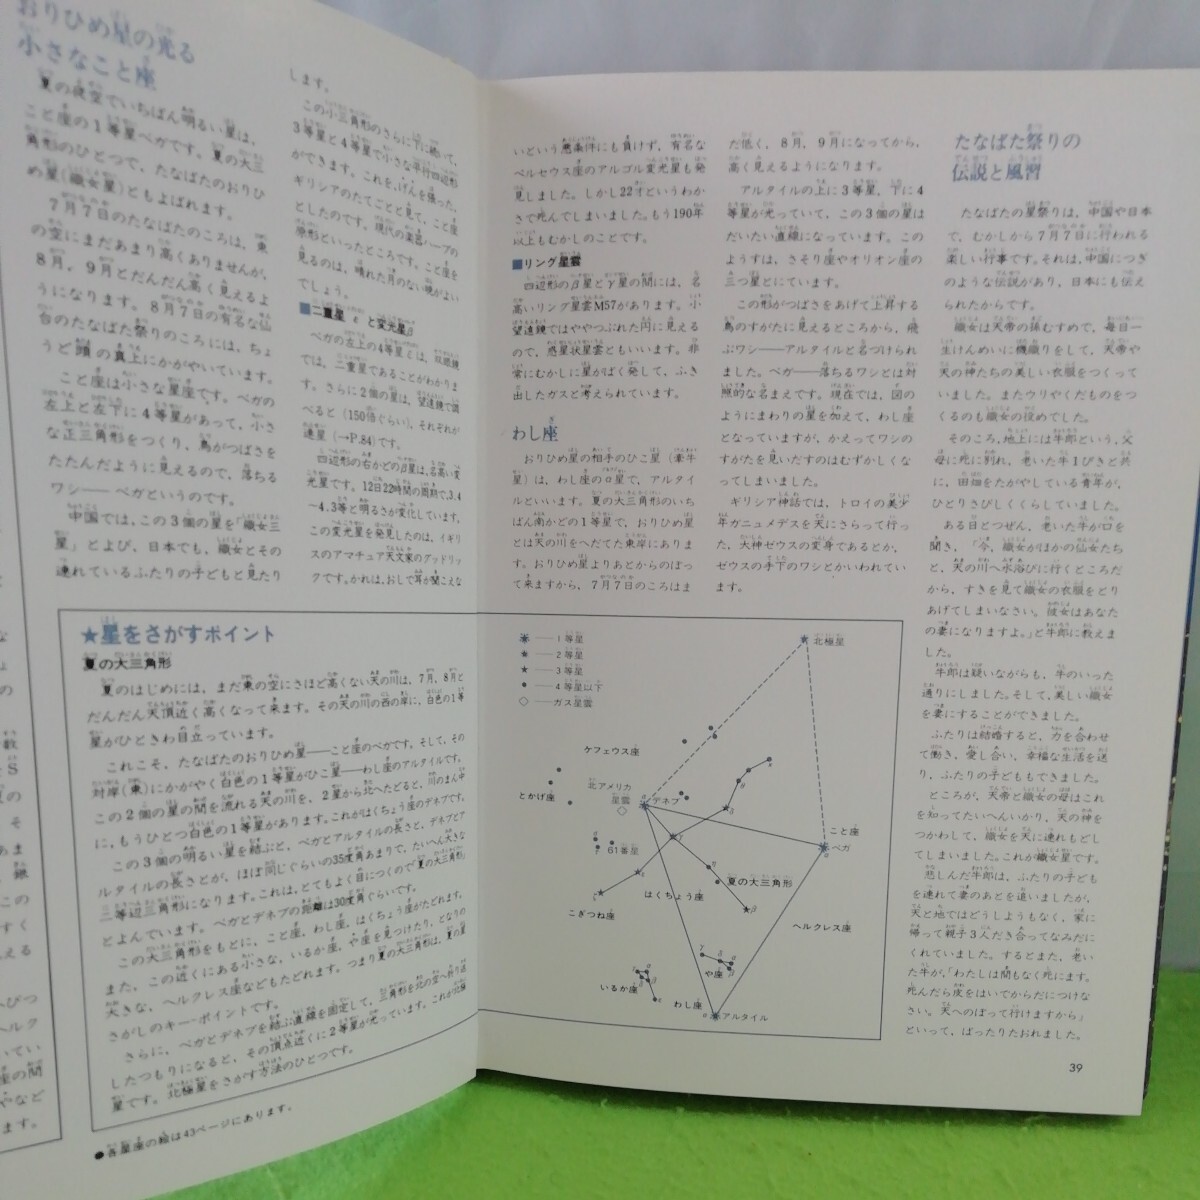 おりひめ星の光る
小さなこと座
夏の夜空でいちばん明るい星は、
こと座の1等星ベガです。夏の大三
角形のひとつで、たなばたのおりひ
め星(織女星)ともよばれます。
7月7日のたなばたのころは、東
の空にまだあまり高くありませんが、
8月、9月とだんだん高く見えるよ
うになります。8月7日の有名な仙
台のたなばた祭りのころには、ちょ
うど頭の真上にかがやいています。
こと座は小さな星座です。ベガの
左上と左下に4等星があって、小さ
な正三角形をつくり、鳥がつばさを
たたんだように見えるので、落ちる
ワシ——ベガというのです。
中国では、この3個の星を「織女三
星」とよび、日本でも、織女とその
連れているふたりの子どもと見たり
します。
この小三角形のさらに下に続いて、
3等星と4等星で小さな平行四辺形
ができます。これを、げんを張った、
ギリシアのたてごとと見て、こと座
としたのです。現代の楽器ハープの
原形といったところです。こと座を
見るのは、晴れた月のない晩がよい
でしょう。
■二重星εと変光星β
ベガの左上の4等星εは、双眼鏡
では、二重星であることがわかりま
す。さらに2個の星は、望遠鏡で調
べると(150倍ぐらい)、それぞれが
連星(→P.84)です。
四辺形の右かどのβ星は、名高い変
光星です。12日22時間の周期で、3.4
〜4.3等と明るさが変化しています。
この変光星を発見したのは、イギリ
スのアマチュア天文家のグッドリッ
クです。かれは、おしで耳が聞こえな
いという悪条件にも負けず、有名な
ペルセウス座のアルゴル変光星も発
見しました。しかし22才というわか
さで死んでしまいました。もう190年
以上もむかしのことです。
■リング星雲
四辺形のβ星とγ星の間には、名
高いリング星雲M57があります。小
望遠鏡ではややつぶれた円に見える
ので、惑星状星雲ともいいます。非
常にむかしに星がばく発して、ふき
出したガスと考えられています。
わし座
おりひめ星の相手のひこ星(牽牛
星)は、わし座のα星で、アルタイ
ルといいます。夏の大三角形のいち
ばん南かどの1等星で、おりひめ星
とは天の川をへだてた東岸にありま
す。おりひめ星よりあとからのぼっ
て来ますから、7月7日のころはま
だ低く、8月、9月になってから、
高く見えるようになります。
アルタイルの上に3等星、下に4
等星が光っていて、この3個の星は
だいたい直線になっています。この
ようすは、さそり座やオリオン座の
三つ星とにています。
この形がつばさをあげて上昇する
鳥のすがたに見えるところから、飛
ぶワシ——アルタイルと名づけられ
ました。ベガ——落ちるワシとは対
照的な名まえです。現在では、図の
ようにまわりの星を加えて、わし座
となっていますが、かえってワシの
すがたを見いだすのはむずかしくな
ってしまいました。
ギリシア神話では、トロイの美少
年ガニュメデスを天にさらって行っ
た、大神ゼウスの変身であるとか、
ゼウスの手下のワシとかいわれてい
ます。
たなばた祭りの
伝説と風習
たなばたの星祭りは、中国や日本
で、むかしから7月7日に行われる
楽しい行事です。それは、中国につぎ
のような伝説があり、日本にも伝え
られたからです。
織女は天帝の孫むすめで、毎日一
生けんめいに機織りをして、天帝や
天の神たちの美しい衣服をつくって
いました。またウリやくだものをつ
くるのも織女の役めでした。
そのころ、地上には牛郎という、父
母に死に別れ、老いた牛1ぴきと共
に、田畑をたがやしている青年が、
ひとりさびしくくらしていました。
ある日とつぜん、老いた牛が口を
聞き、「今、織女がほかの仙女たち
と、天の川へ水浴びに行くところだ
から、すきを見て織女の衣服をとり
あげてしまいなさい。彼女はあなた
の妻になりますよ。」と牛郎に教えま
した。
牛郎は疑いながらも、牛のいった
通りにしました。そして、美しい織女
を妻にすることができました。
ふたりは結婚すると、力を合わせ
て働き、愛し合い、幸福な生活を送
り、ふたりの子どももできました。
ところが、天帝と織女の母はこれ
を知ってたいへんいかり、天の神を
つかわして、織女を天に連れもどし
てしまいました。これが織女星です。
悲しんだ牛郎は、ふたりの子ども
を連れて妻のあとを追いましたが、
天と地ではどうしようもなく、家に
帰って親子3人だき合ってなみだに
くれていました。するとまた、老い
た牛が、「わたしは間もなく死にます。
死んだら皮をはいでからだにつけな
さい。天へのぼって行けますから」
といって、ばったりたおれました。
★星をさがすポイント
夏の大三角形
夏のはじめには、まだ東の空にさほど高くない天の川は、7月、8月と
だんだん天頂近く高くなって来ます。その天の川の西の岸に、白色の1等
星がひときわ目立っています。
これこそ、たなばたのおりひめ星——こと座のベガです。そして、その
対岸(東)にかがやく白色の1等星がひこ星——わし座のアルタイルです。
この2個の星の間を流れる天の川を、2星から北へたどると、川のまん中
に、もうひとつ白色の1等星があります。これがはくちょう座のデネブです。
この3個の明るい星を結ぶと、ベガとアルタイルの長さと、デネブとア
ルタイルの長さとが、ほぼ同じぐらいの35度角あまりで、たいへん大きな
二等辺三角形になります。これは、とてもよく目につくので「夏の大三角形」
とよんでいます。ベガとデネブの距離は30度角ぐらいです。
この大三角形をもとに、こと座、わし座、はくちょう座がたどれます。
また、この近くにある小さな、いるか座、や座を見つけたり、となりの
大きな、ヘルクレス座などもたどれます。つまり夏の大三角形は、夏の星
さがしのキー・ポイントです。
さらに、ベガとデネブを結ぶ直線を固定して、三角形を北の空へ折り返
したつもりになると、その頂点近くに2等星が光っています。これが北極
星です。北極星をさがす方法のひとつです。
●各星座の絵は43ページにあります。
——1等星
——2等星
——3等星
——4等星以下
——ガス星雲
北極星
ケフェウス座
とかげ座
北アメリカ
星雲
α デネブ
こと座
ベガ
α
61番星
夏の大三角形
はくちょう座
こぎつね座
ヘルクレス座
や座
いるか座
わし座
α アルタイル
39